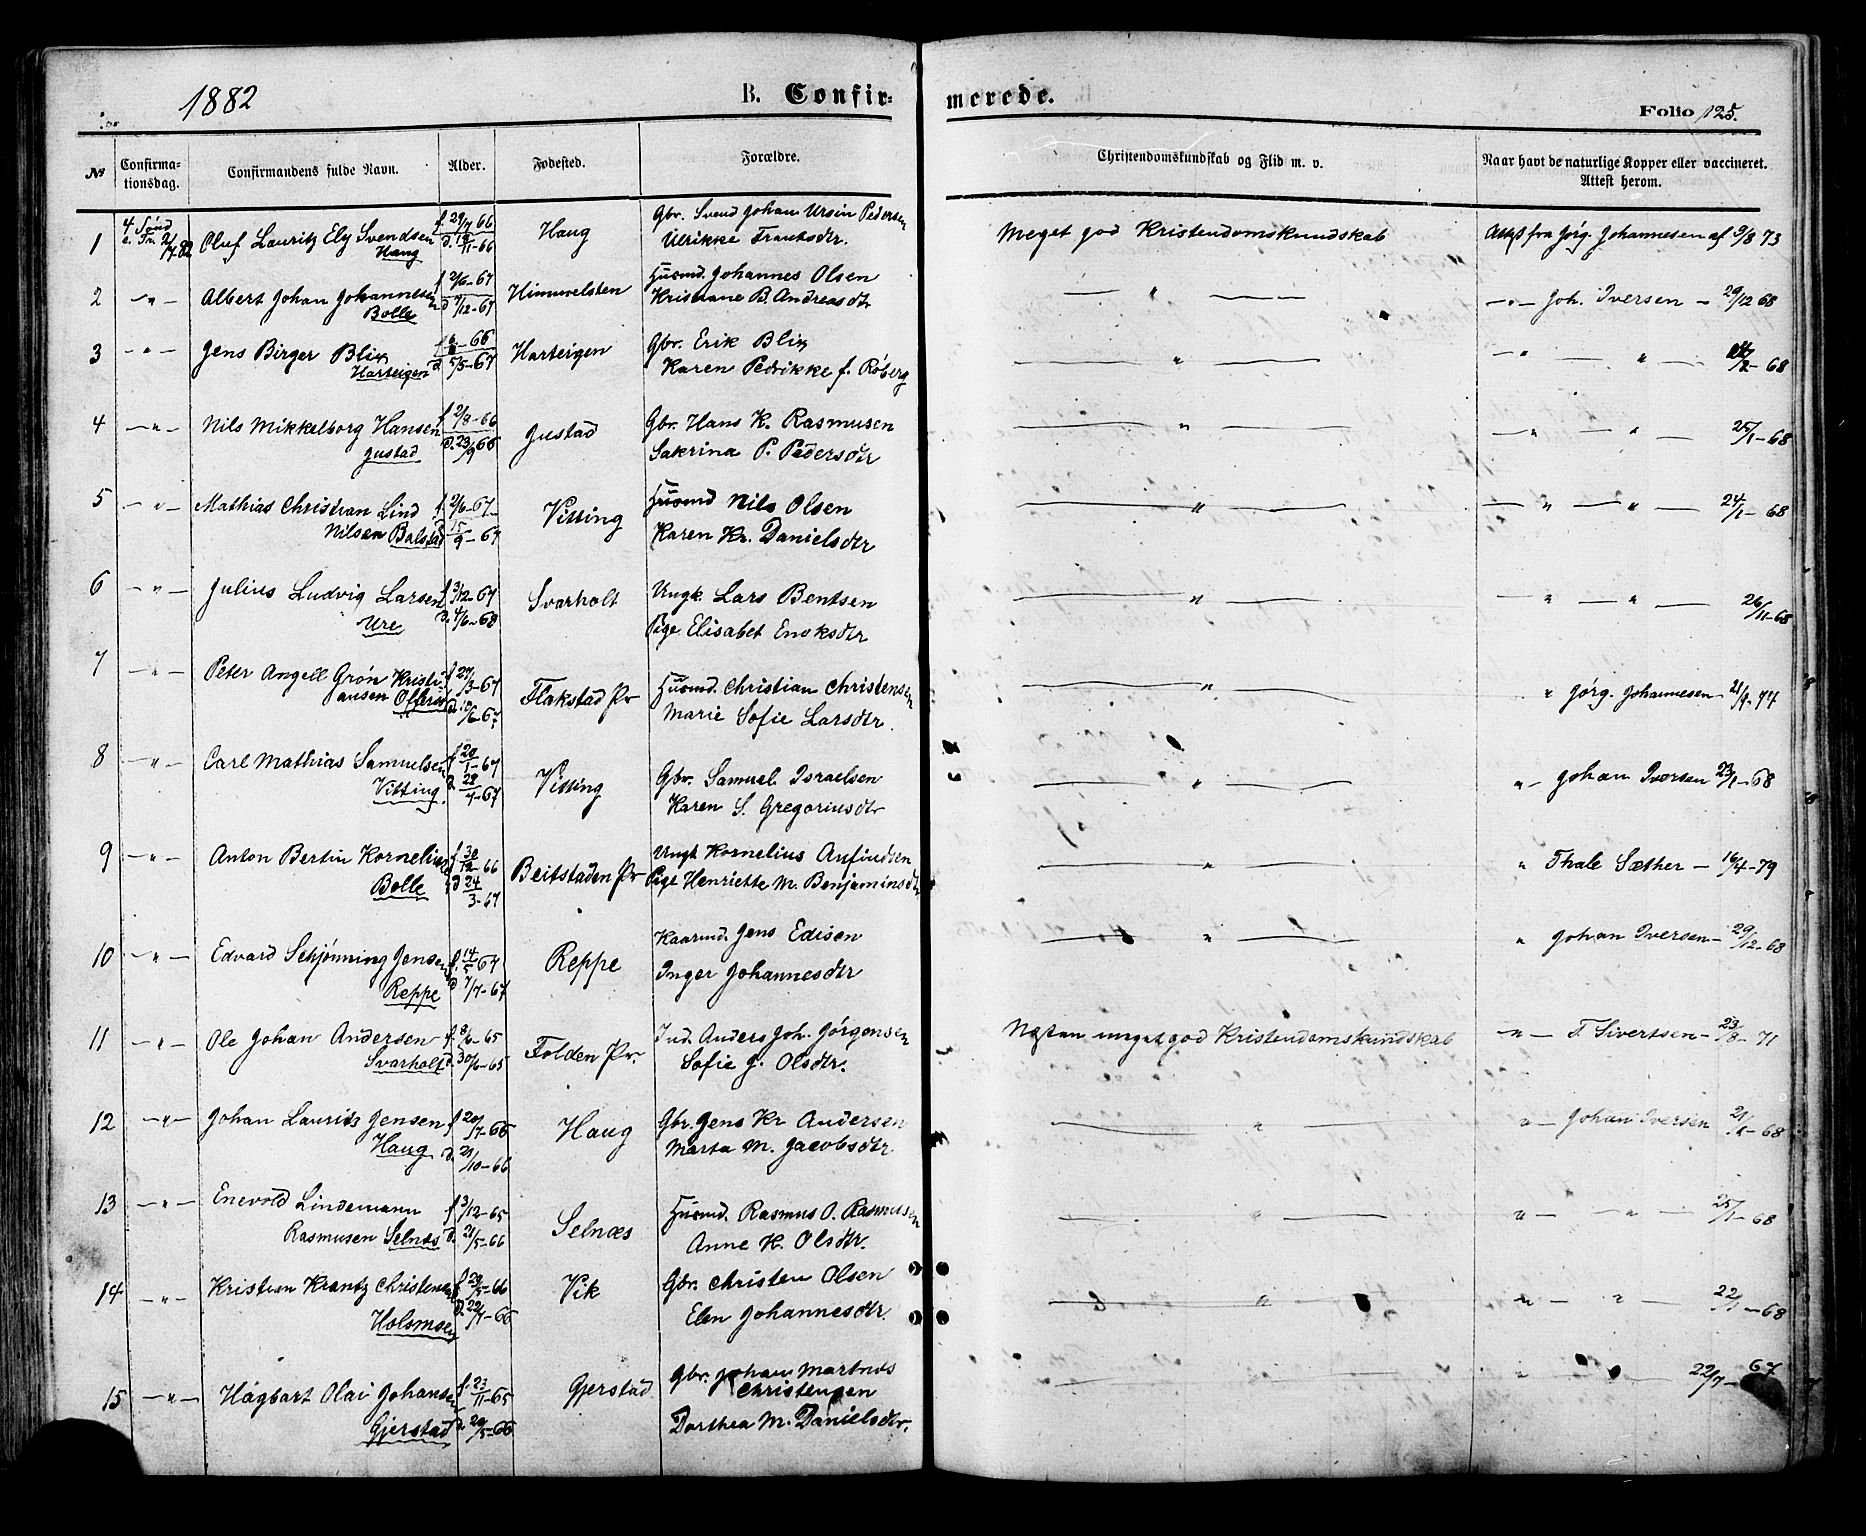 1882
B. Confir-
merede.
Folio 125.
№
Confirma-
tionsdag.
Confirmandens fulde Navn.
Alder.
Fødested.
Forældre.
Christendomskundskab og Flid m. v.
Naar havt de naturlige Kopper eller vaccineret.
Attest herom.
1 4 Sønd e. Tr. 2/7 82 Oluf Lauritz Ely Svendsen Haug f. 29/7 66 Haug Gbr. Svend Johan Ursin Pedersen
Ulrikke Trautsdtr. Meget god Kristendomskundskab Attest fra Jørg. Johannesen af 9/8 73
2 — " — Albert Johan Johannesen Bolle f 2/6-67 d 7/12-67 Himmelsten Husmd. Johannes Olsen
Kristiane B. Andreasdtr — " — — " — Joh. Iversen — 29/12 68
3 — " — Jens Birger Blix Harteigen d. 5/5-67 Harteigen Gbr. Erik Blix
Karen Pedrikke f. Røberg — " — — " — " — 68
4 — " — Nils Mikkelborg Hansen Gustad f 2/8-66 d. 23/9 66 Gustad Gbr. Hans K. Rasmusen
Sakrina P. Pedersdtr — " — — " — " — 25/1-68
5 — " — Mathias Christian Lind
Nilsen Balstad f. 2/6-67 d. 15/9-67 Vitting Husmd Nils Olsen
Karen Kr. Danielsdtr — " — — " — " — 24/1-68
6 — " — Julius Ludvig Larsen Ure f 3/12-67 d. 4/6-68 Svarholt Ungk. Lars Bentsen
Pige Elisabet Enoksdtr — " — " — " — 26/11-68
7 — " — Peter Angell Grøn Kristi-
ansen Offersø f 27/3-67 d. 10/6-67 Flakstad Pr Husmd. Christian Christensen
Marie Sofie Larsdtr. — " — " Jørg. Johannesen
8 — " — Carl Mathias Samuelsen Vitting f 20/1-67 d. 28/4-67 Vitting Gbr. Samuel Israelsen
Karen S. Gregoriusdtr — " — " — Johan Iversen 23/1-68
9 — " — Anton Bertin Kornelius Bolle f. 30/12-66 d 24/3-67 Beitstaden Pr Ungk Kornelius Anfindsen
Pige Henriette M. Benjaminsdtr — " — " Thale Sæther — 16/4-79
10 — " — Edvard Schjønning Jensen Reppe f. 14/5 67 d 7/7-67 Reppe Kaarmd. Jens Edisen
Inger Johannesdtr — " — " Johan Iversen — 29/12-68
11 — " — Ole Johan Andersen Svarholt f. 8/6-65 d. 30/6-65 Folden Pr. Ind. Anders Joh. Jørgensen
Sofie J. Olsdtr. Næsten meget god Kristendomskundskab — " — T. Sivertsen — 23/8-71
12 — " — Johan Laurids Jensen Haug f 20/7-66 d. 21/10-66 Haug Gbr. Jens Kr Andersen
Marta M. Jacobsdtr. — " — " — Johan Iversen 21/1-68
13 — " — Enevold Lindemann
Rasmusen Selnæs f 3/12-65 d. 21/5-66 Selnæs Husmd. Rasmus O. Rasmussen
Anne K. Olsdtr. — " — " — " — 25/1-68
14 — " — Kristian Krantz Christensen Holsmoen f 29/5-66 d. 22/7-66 Vik Gbr. Christen Olsen
Elen Johannesdtr. — " — " — " — 22/1-68
15 — " — Hagbart Olai Johansen Gjerstad f. 23/11-65 d 20/5-66 Gjerstad Gbr. Johan Martnus
Christensen
Dorthea M. Danielsdtr. — " — " — " — 22/7-67